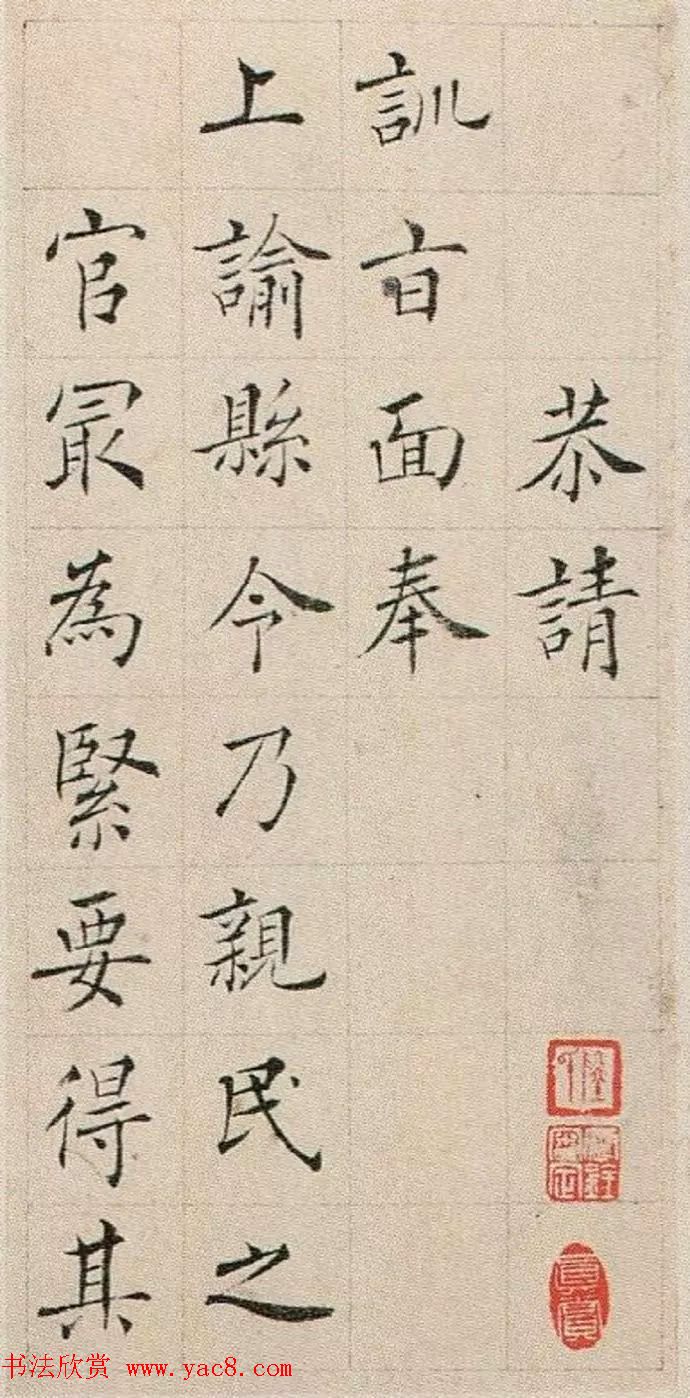 恭請
訓旨面奉
上諭縣令乃親民之
官冣為緊要得其
书法欣赏 www.yac8.com